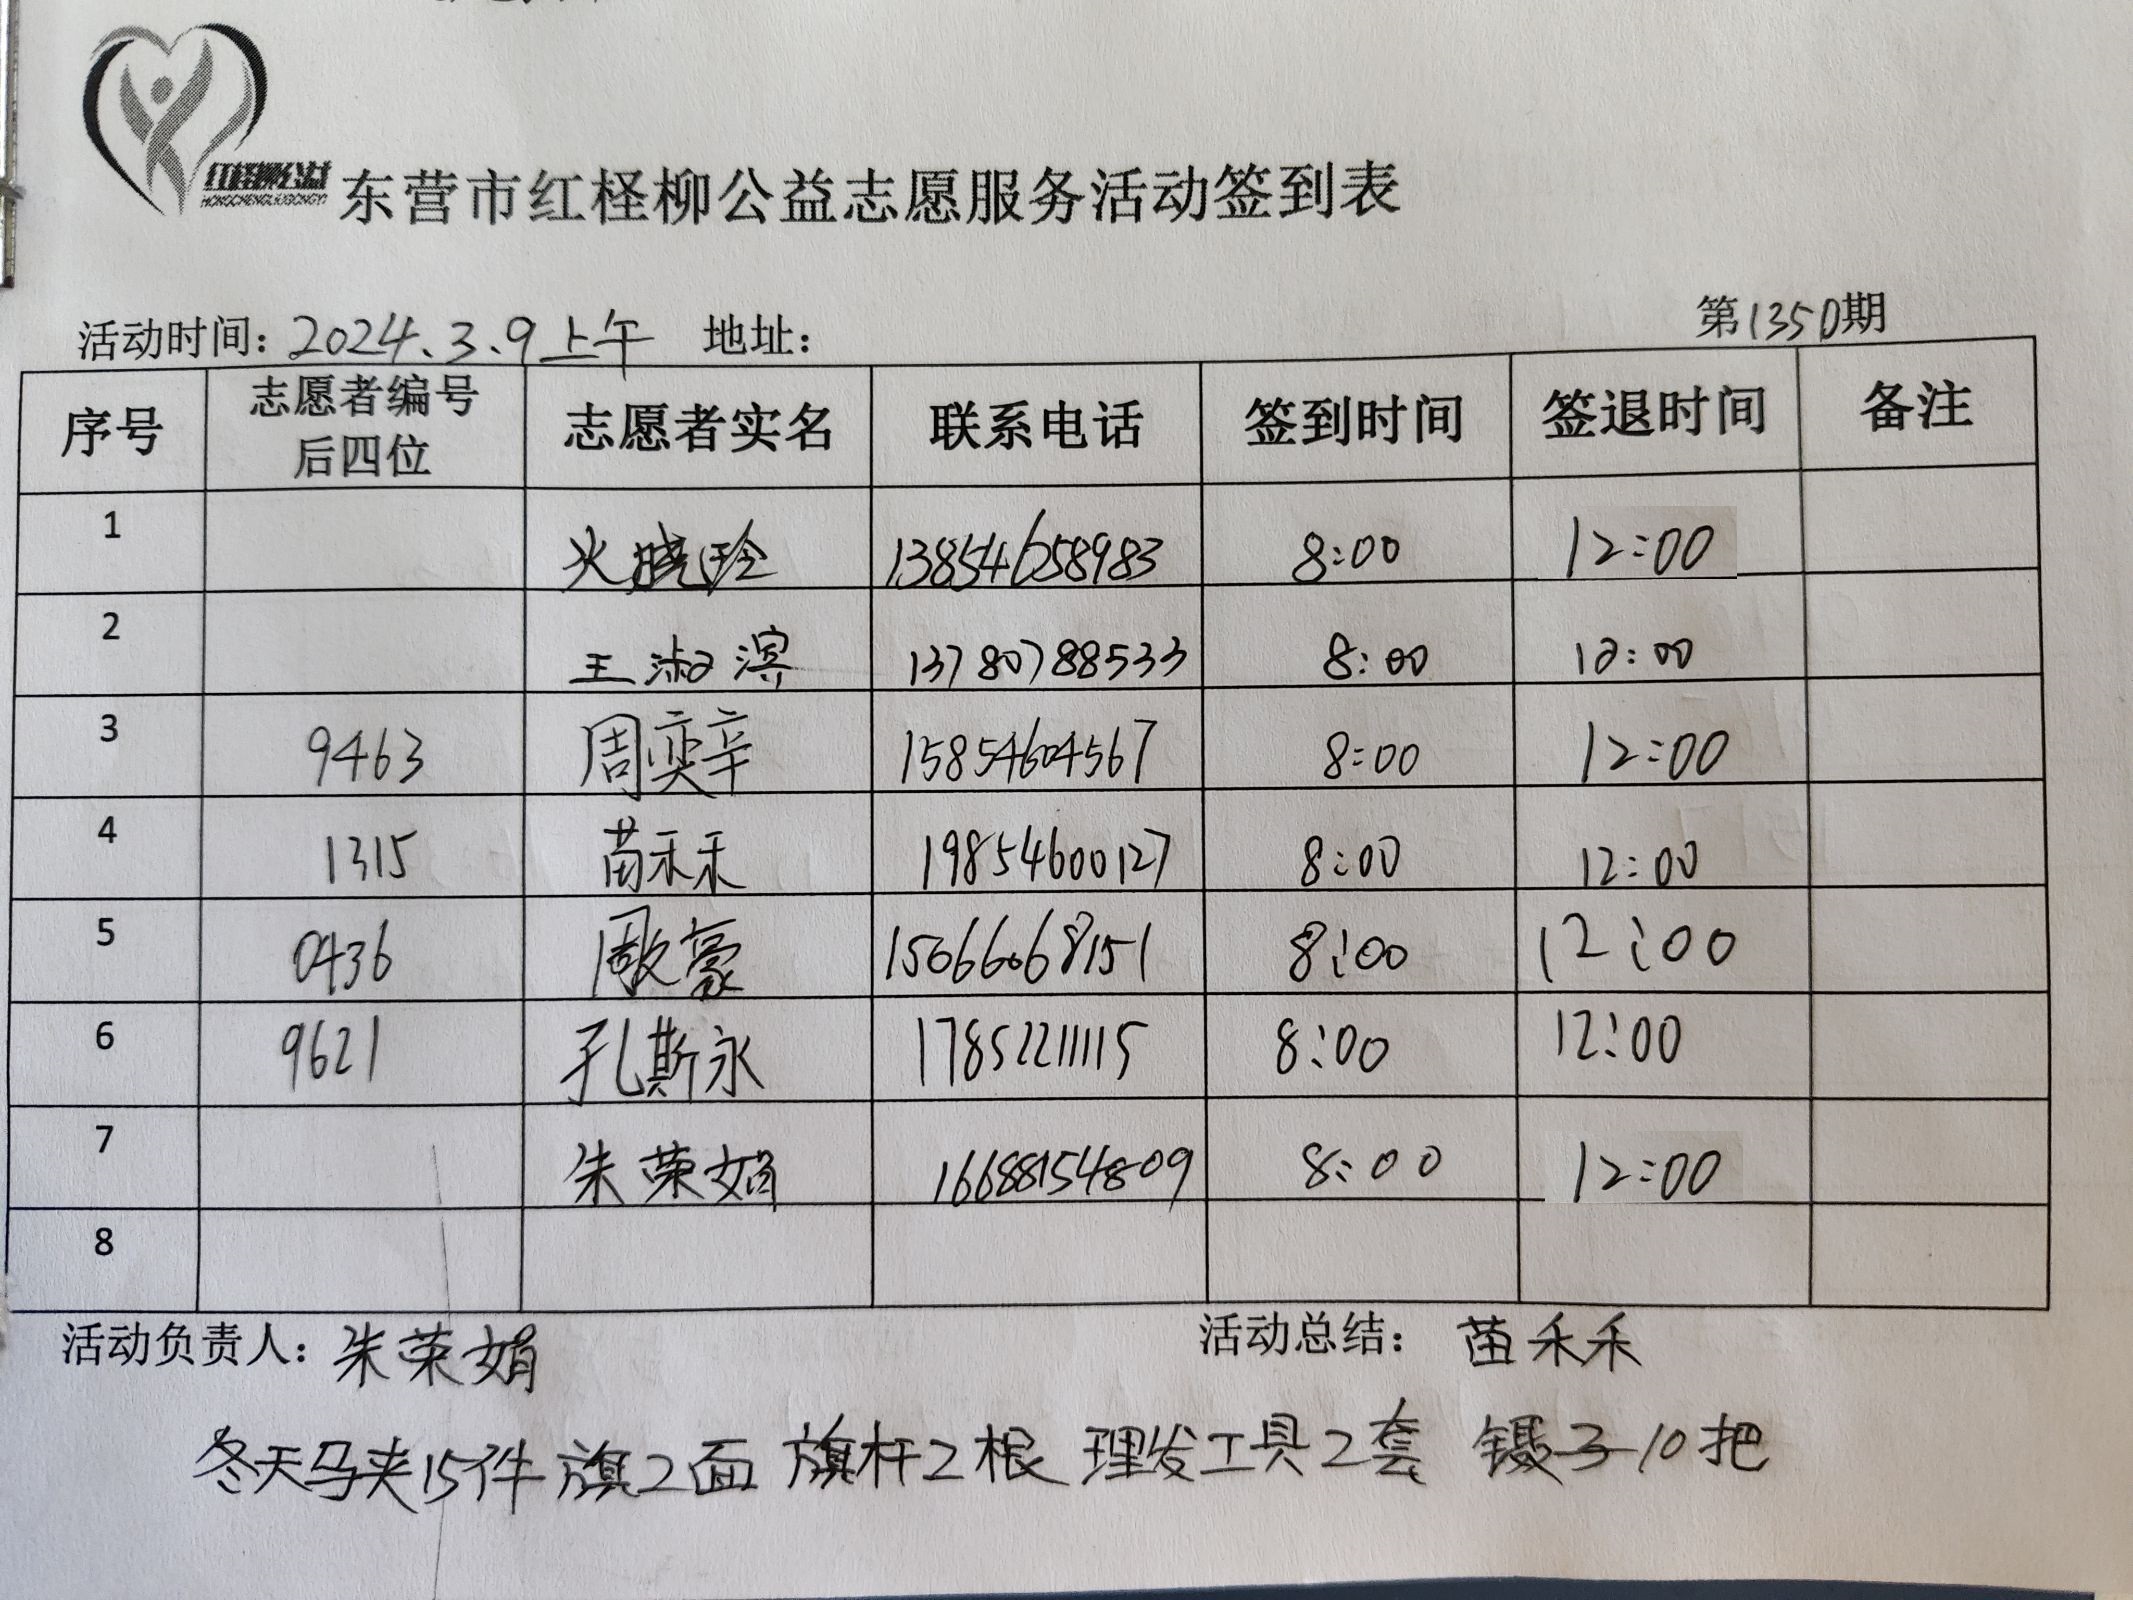 红柽柳公益
HONGCHENGLIUGONGYI
东营市红柽柳公益志愿服务活动签到表
活动时间：2024.3.9上午 地址： 第1350期
序号 志愿者编号后四位 志愿者实名 联系电话 签到时间 签退时间 备注
1 火晓玲 13854658983 8:00 12:00
2 王淑滨 13780788533 8:00 12:00
3 9463 周奕辛 15854604567 8:00 12:00
4 1315 苗禾禾 19854600127 8:00 12:00
5 0436 周敬豪 15066068151 8:00 12:00
6 9621 孔斯永 17852211115 8:00 12:00
7 朱荣娟 16688154809 8:00 12:00
8
活动负责人：朱荣娟 活动总结：苗禾禾
冬天马夹15件 旗2面 旗杆2根 理发工具2套 镊子10把